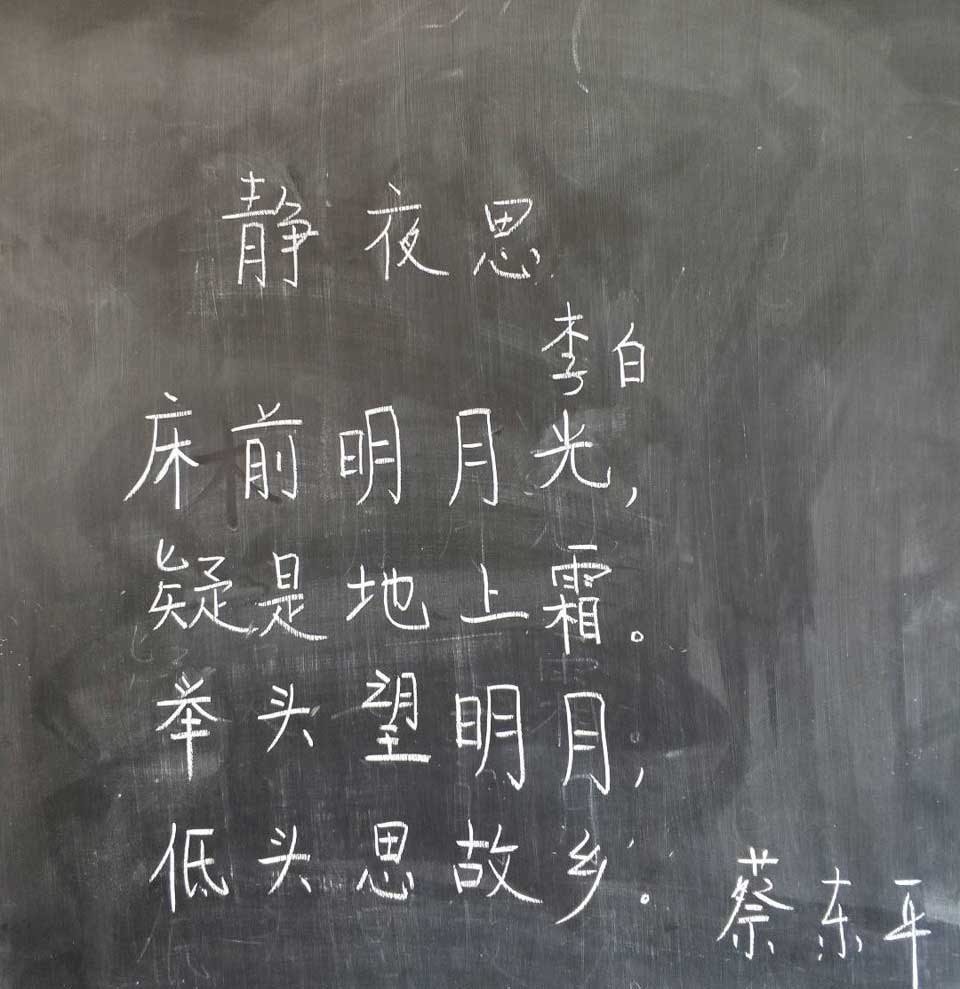 静夜思
李白
床前明月光，
疑是地上霜。
举头望明月，
低头思故乡。
蔡东平